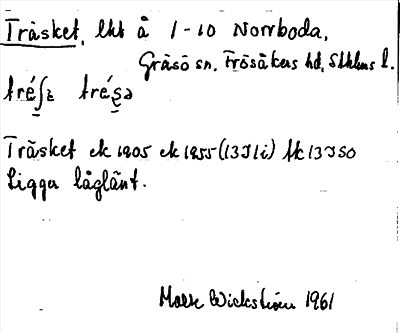 Träsket, lht å 1-10 Norrboda,
Gräsö sn. Frösåkers hd, Sthlms l.
Träsket ek 1905 ek 1955 (13I1i) tk 13I50
Ligga låglänt.
Wickström 1961